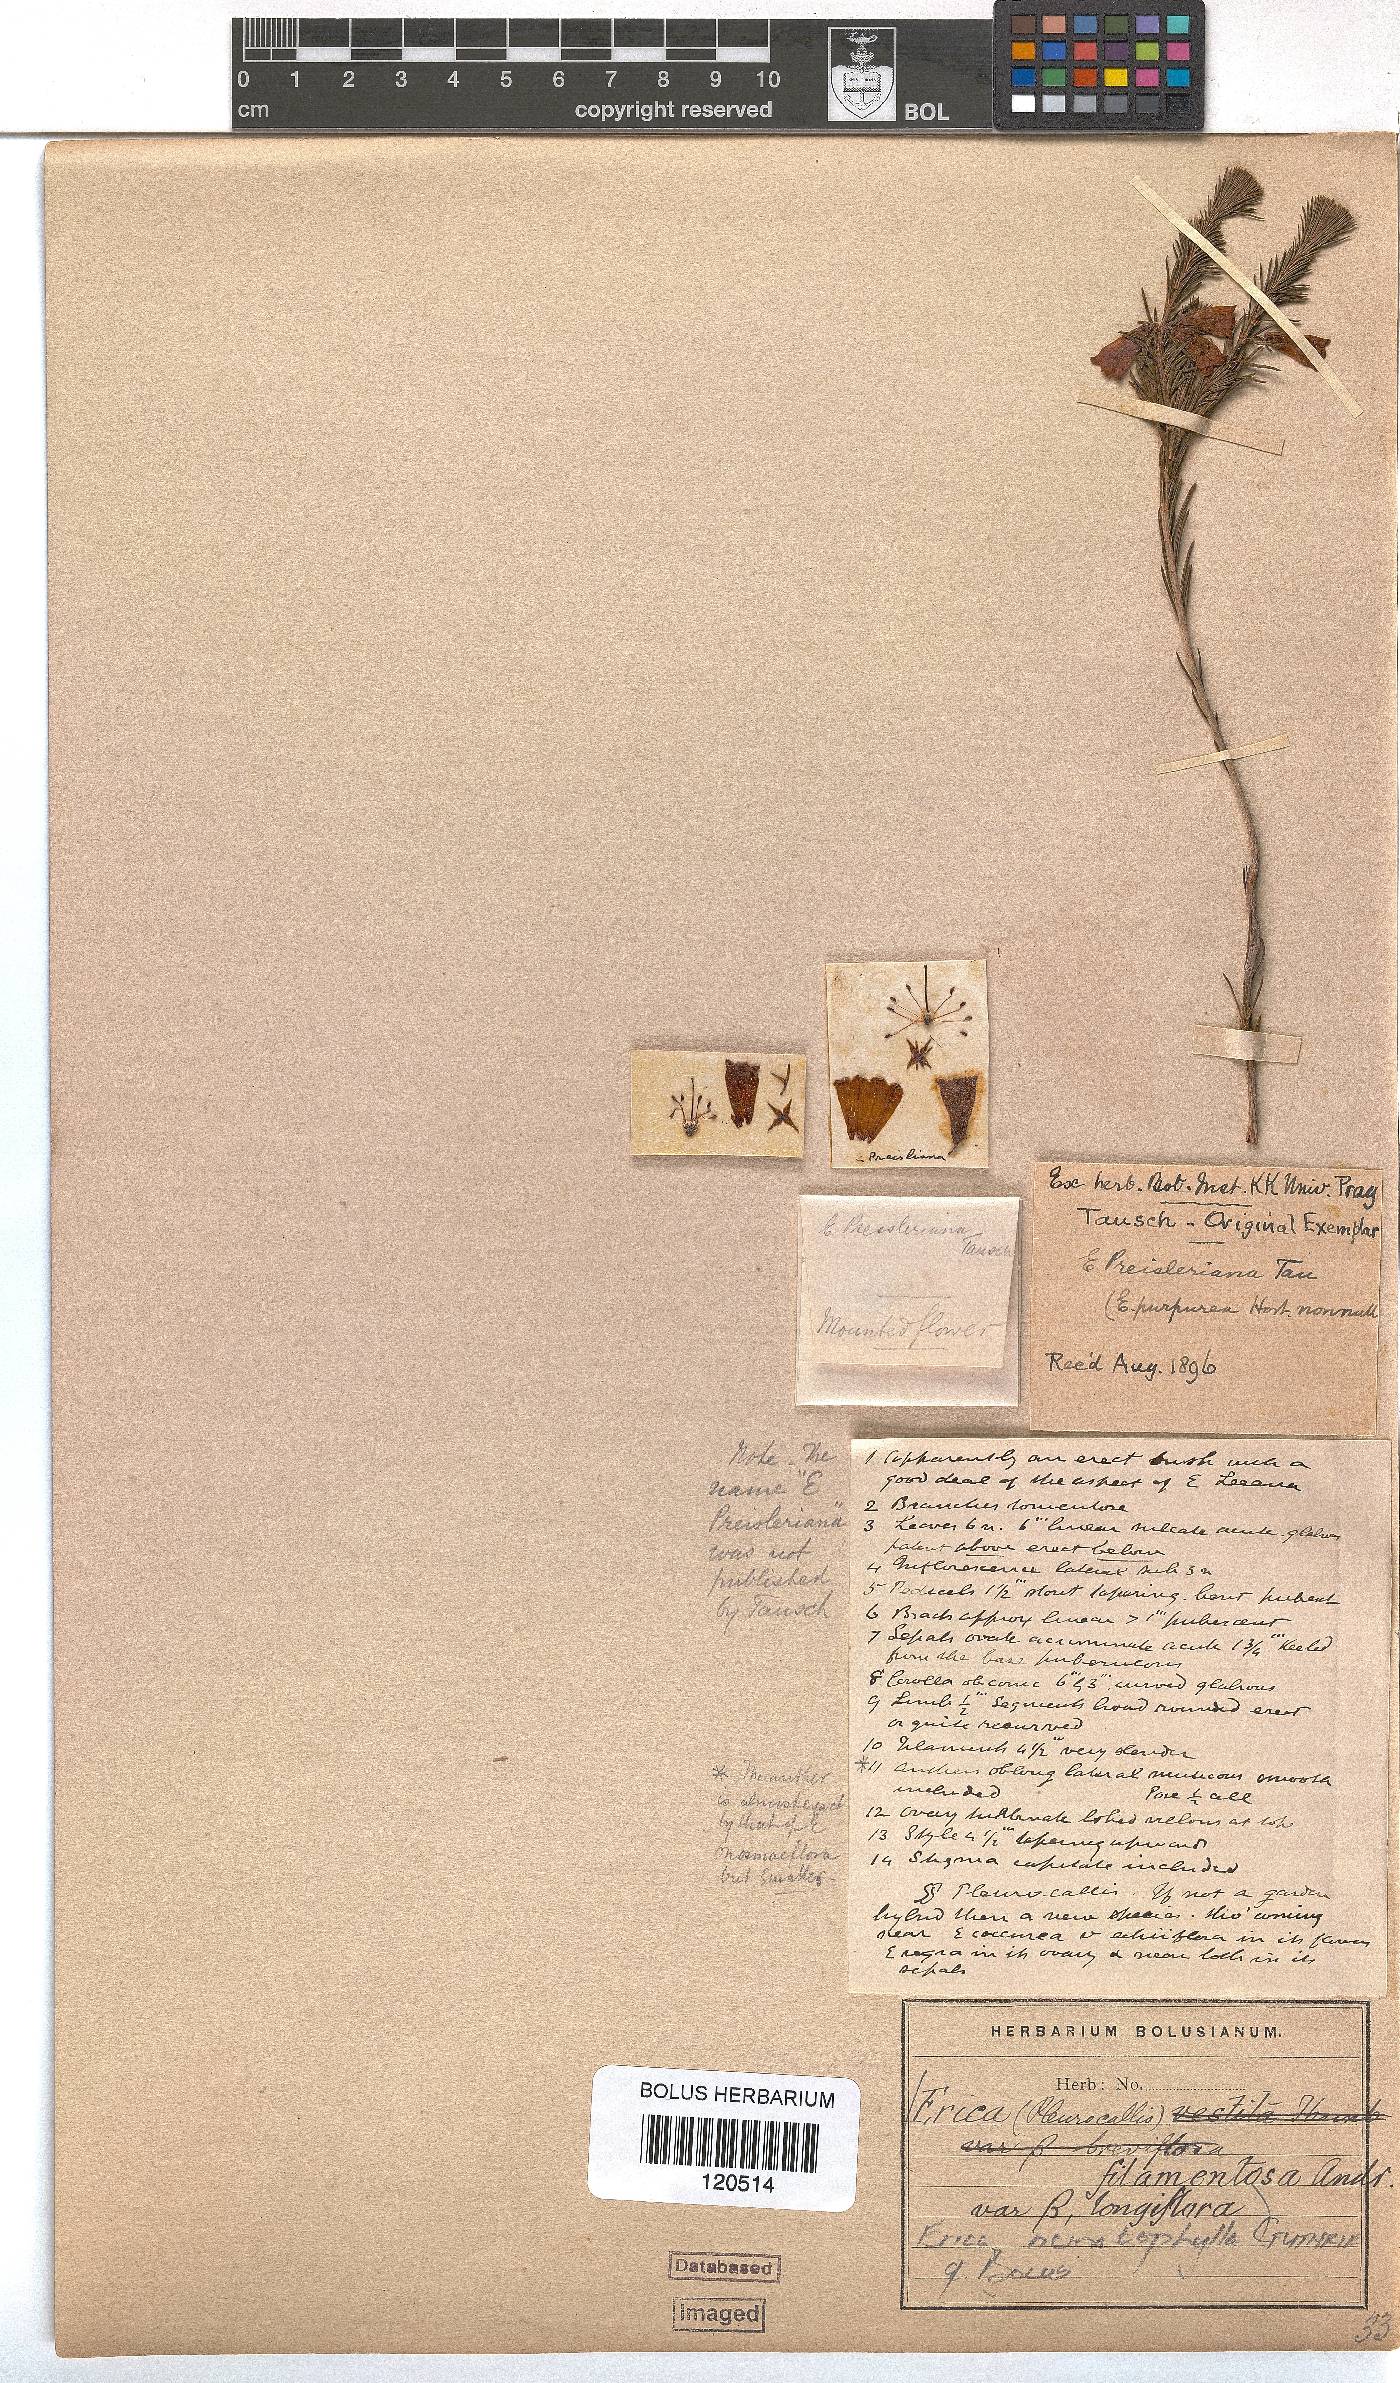 0 1 2 3 4 5 6 7 8 9 10
cm
copyright reserved
BOL
Preisliana
Ex herb. Bot. Inst. KK Univ. Prag
Tausch - Original Exemplar
E Preisleriana Tau
(E. purpurea Hort. nonnull
Rec'd Aug. 1896
E Preisleriana
Tausch
Mounted flower
Note. The
name "E
Preisleriana"
was not
published
by Tausch
1 Apparently an erect bush with a
good deal of the aspect of E Leeana
2 Branches tomentose
3 Leaves 6 n. 6''' linear sulcate acute glabrous
patent above erect below
4 Inflorescence lateral sub 3 n
5 Pedicels 1½''' stout tapering bent pubesct
6 Bracts approx linear > 1''' pubescent
7 Sepals ovate acuminate acute 1¾''' keeled
from the base puberulous
8 Corolla obconic 6''' by 3''' curved glabrous
9 Limb ½''' Segments broad rounded erect
or quite recurved
10 Filaments 4½''' very slender
*11 Anthers oblong lateral muticous smooth
included Pore ½ cell
12 Ovary turbinate lobed villous at top
13 Style 4½''' tapering upwards
14 Stigma capitate included
§ Pleurocallis. If not a garden
hybrid then a new species. tho' coming
near E coccinea v echiiflora in its flowers
E regia in its ovary & near both in its
sepals
* The anther
is almost exact
by that of E
but smaller
HERBARIUM BOLUSIANUM.
Herb: No.
Erica (Pleurocallis) vestita Thunb
var β breviflora
filamentosa Andr.
var β, longiflora
Erica nematophylla Guthrie
& Bolus
BOLUS HERBARIUM
120514
Databased
Imaged
33